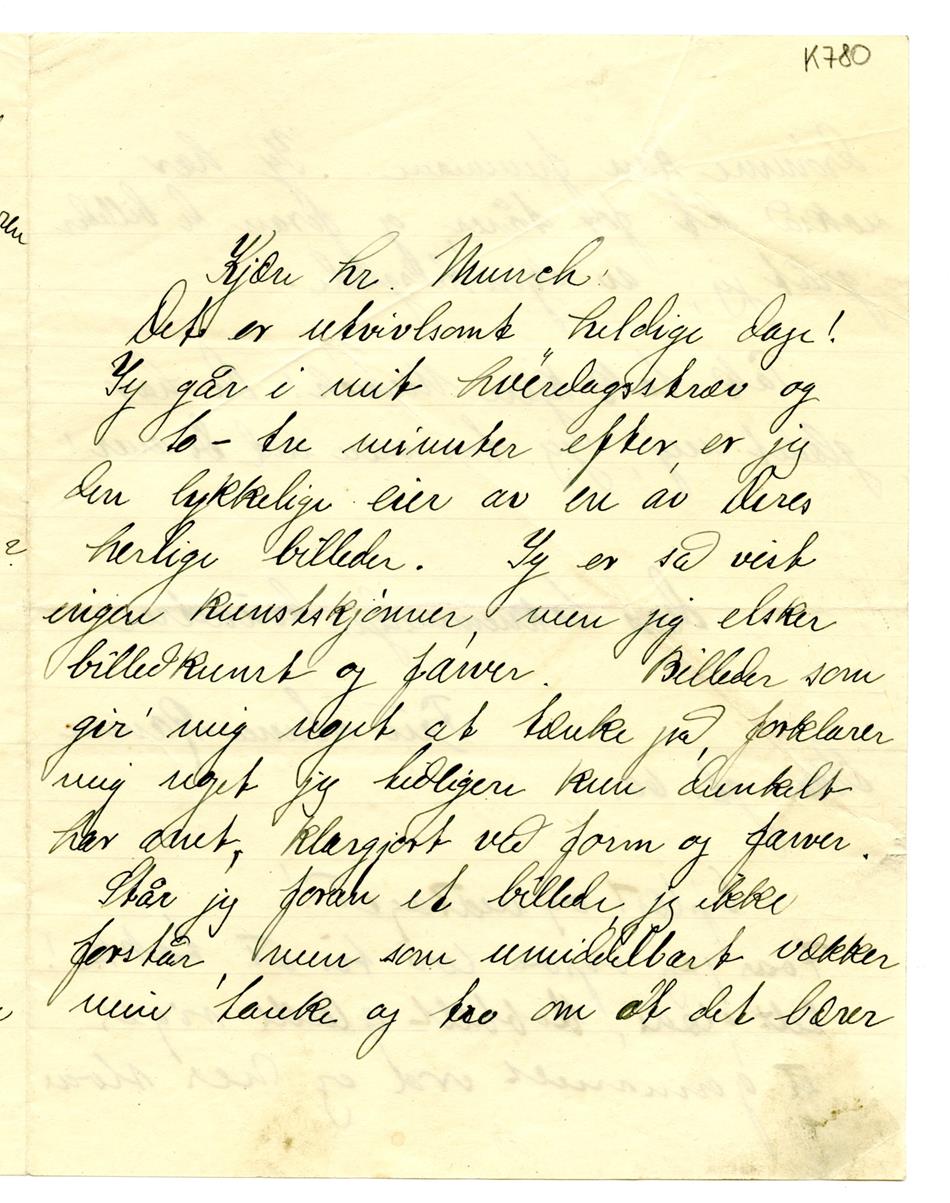 K780
Kjære hr. Munch!
Det er utvivlsomt heldige dage!
Jeg går i mit hverdagsstræv og
to – tre minuter efter, er jeg
den lykkelige eier av en av Deres
herlige billeder. Jeg er så vist
ingen kunstskjønner, men jeg elsker
billedkunst og farver. Billeder som
gir mig noget at tænke på, forklarer
mig noget jeg tidligere kun dunkelt
har anet, klargjort ved form og farver.
Står jeg foran et billede, jeg ikke
forstår, men som umiddelbart vækker
min tanke og tro om at det bærer